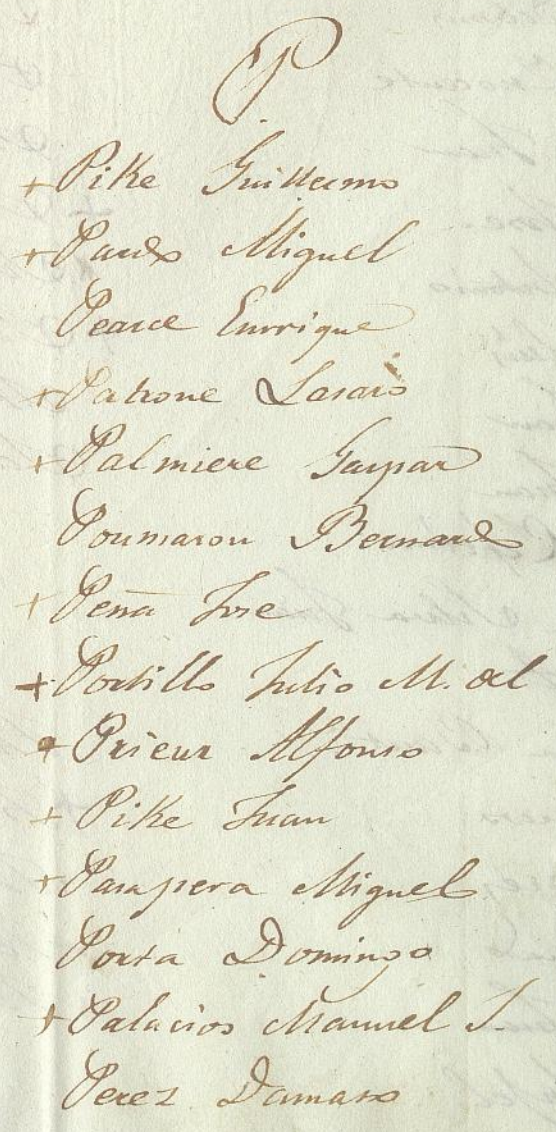 P
+ Pike Guillermo
+ Pardo Miguel
Pearce Enrrique
+ Patrone Lasaro
+ Palmiere Gaspar
Poumarou Bernardo
+ Peña Jose
+ Portillo Julio M. del
+ Prieur Alfonso
+ Pike Juan
+ Parapera Miguel
Porta Domingo
+ Palacios Manuel J.
Perez Damaso